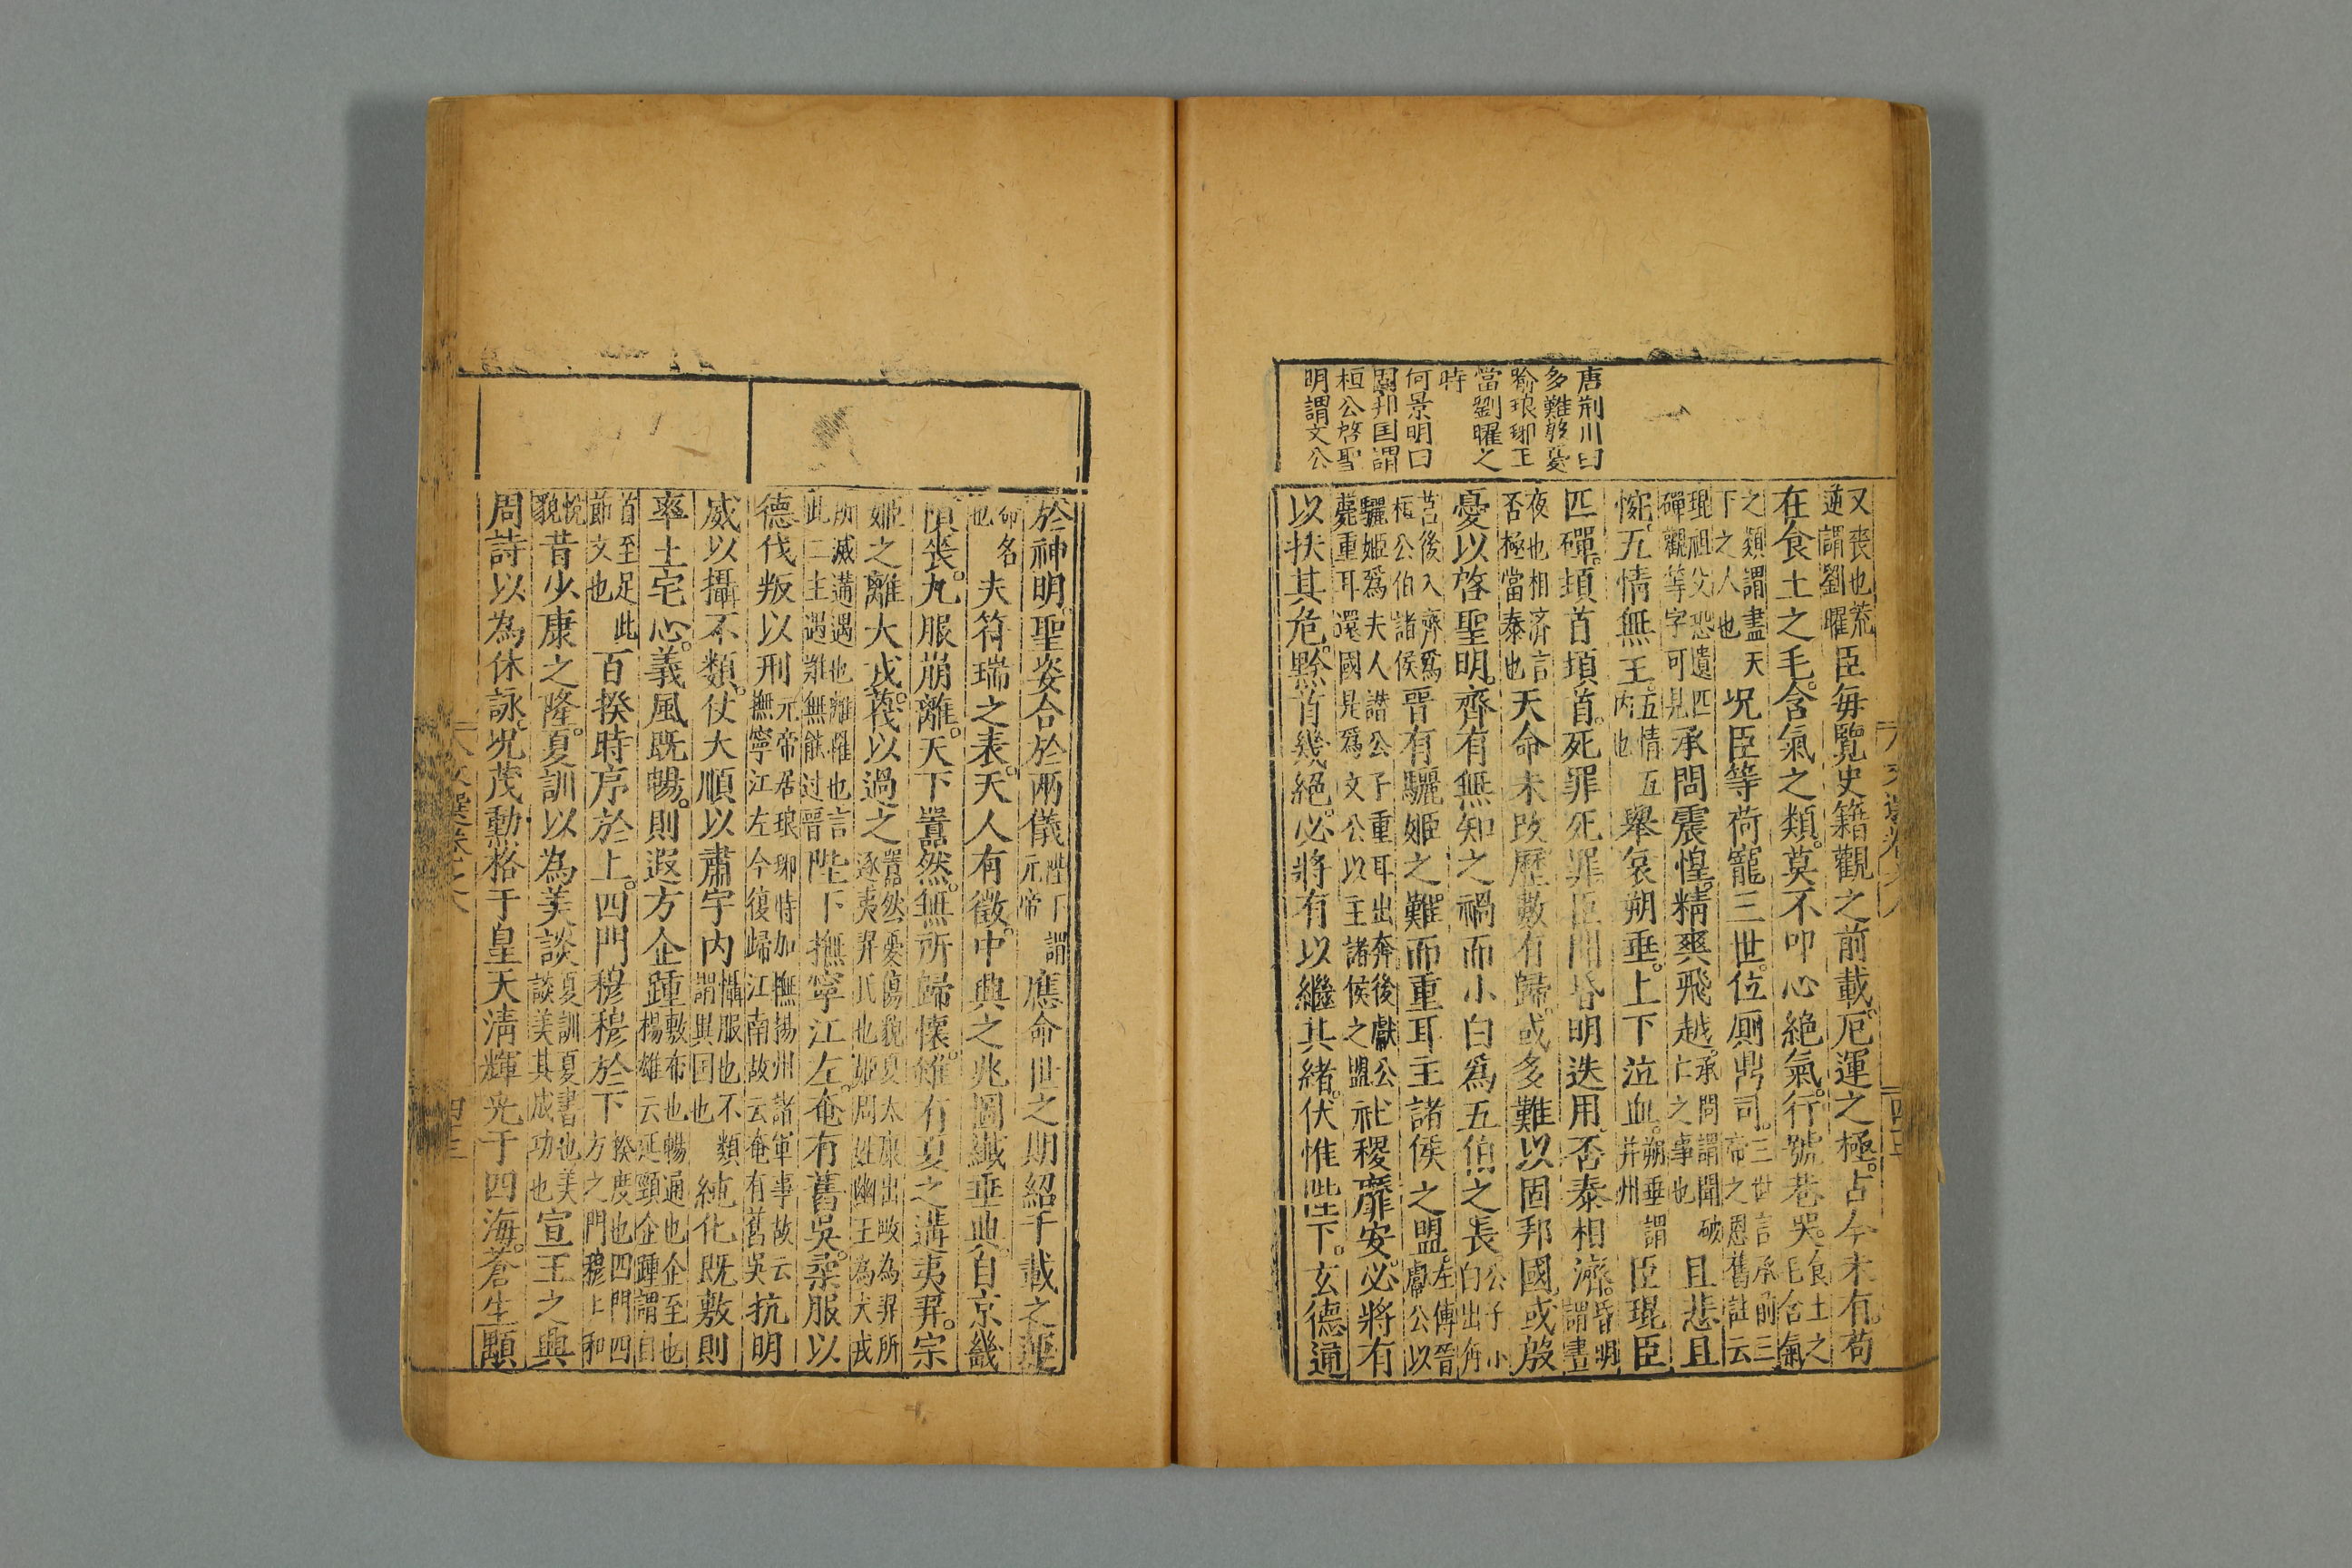 唐荆川曰
多難殷憂
喻琅琊王
當劉曜之
時
何景明曰
固邦国謂
桓公啓聖
明謂文公
又喪也荒
逆謂劉曜
臣每覽史籍觀之前載厄運之極古今未有苟
在食土之毛含氣之類莫不叩心絶氣行號巷哭
食土之
毛含氣
之類謂盡天
下之人也
况臣等荷寵三世位厠鼎司
三世言承前三
帝之恩舊註云
琨祖父恐遺匹
磾觀等字可見
承問震惶精爽飛越
承問謂聞破
亡之事也
且悲且
惋五情無主
五情五
内也
舉哀朔垂上下泣血
朔垂謂
并州
臣琨臣
匹磾頓首頓首死罪死罪臣聞昏明迭用否泰相濟
昏明
謂晝
夜也相济言
否極當泰也
天命未改歷數有歸或多難以固邦國或殷
憂以啓聖明齊有無知之禍而小白爲五伯之長
公子小
白出奔
莒後入齊爲
桓公伯諸侯
晉有驪姬之難而重耳主諸侯之盟
左傳晉
獻公以
驪姬爲夫人譖公子重耳出奔後獻公
薨重耳還國是爲文公以主諸侯之盟
社稷靡安必將有
以扶其危黔首幾絕必將有以繼其緒伏惟陛下玄德通
於神明聖姿合於兩儀
陛下謂
元帝
應命世之期紹千載之運
命名
也
夫符瑞之表天人有徵中興之兆圖讖垂典自京畿
隕喪九服崩離天下囂然無所歸懷雖有夏之遘夷羿宗
姬之離犬戎蔑以過之
囂然憂傷貌夏太康出畋為羿所
逐夷羿氏也姬周姓幽王為犬戎
所滅遘遇也離罹也言
此二主遇難無能过晉
陛下撫寧江左奄有舊吳柔服以
德伐叛以刑
元帝居琅琊特加撫揚州諸軍事故云
撫寧江左今復歸江南故云奄有舊吳
抗明
威以攝不類仗大順以肅宇内
懾服也不類
謂異囯也
純化既敷則
率土宅心義風既暢則遐方企踵
敷布也暢通也企至也
楊雄云延頸企踵謂自
首至足此
節文也
百揆時序於上四門穆穆於下
揆度也四門四
方之門穆上和
悅
貌
昔少康之隆夏訓以為美談
夏訓夏書也美
談美其成功也
宣王之興
周詩以為休詠况茂勳格于皇天清輝光于四海蒼生顒